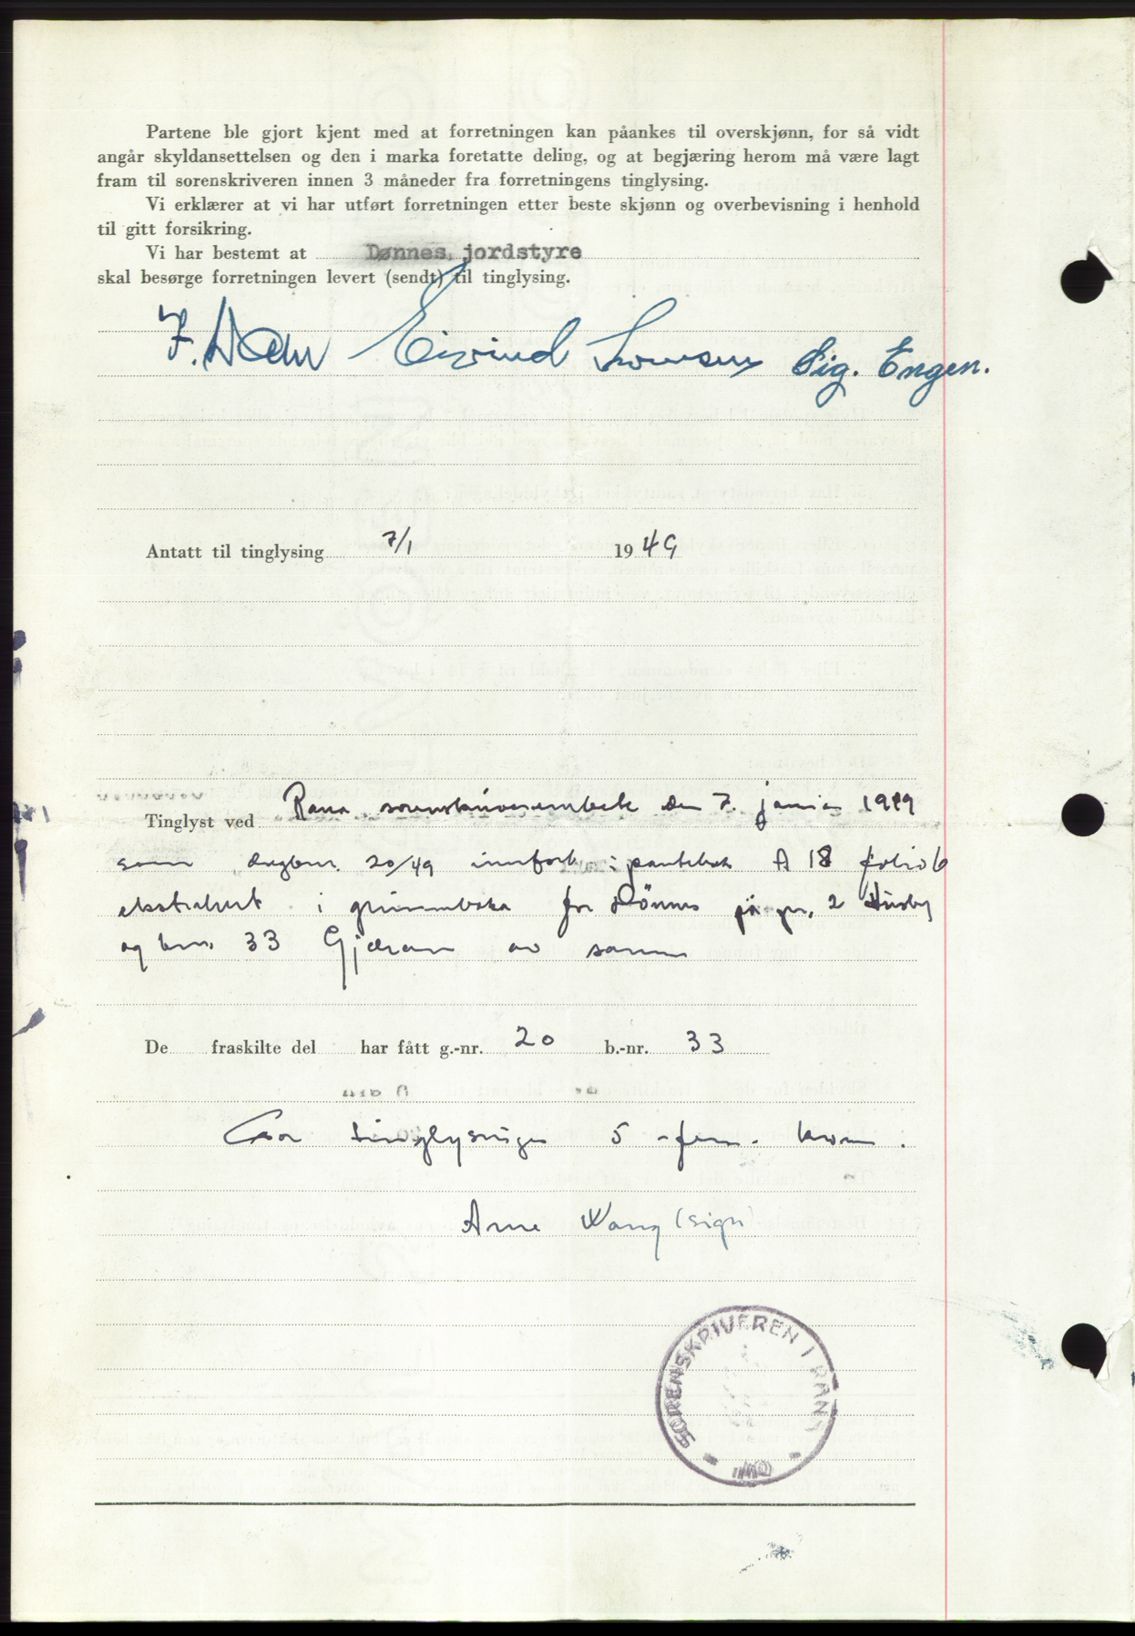 Partene ble gjort kjent med at forretningen kan påankes til overskjønn, for så vidt
angår skyldansettelsen og den i marka foretatte deling, og at begjæring herom må være lagt
fram til sorenskriveren innen 3 måneder fra forretningens tinglysing.
Vi erklærer at vi har utført forretningen etter beste skjønn og overbevisning i henhold
til gitt forsikring.
Vi har bestemt at Dønnes, jordstyre
skal besørge forretningen levert (sendt) til tinglysing.
Eivind Sig. Engen.
Antatt til tinglysing 7/1 1949
Tinglyst ved Rana sorenskriverembete den 7. januar 1949
som dagbnr. 20/49 innført i pantebok A 18 folio 6
ekstrahert i grunnboka for Dönnes på gnr. 2 Husby
og bnr. 33 Gjæran av samme
De fraskilte del har fått g.-nr. 20 b.-nr. 33
For tinglysingen 5 - fem - kroner.
Arne Wang (sign)
SORENSKRIVEREN I RANA